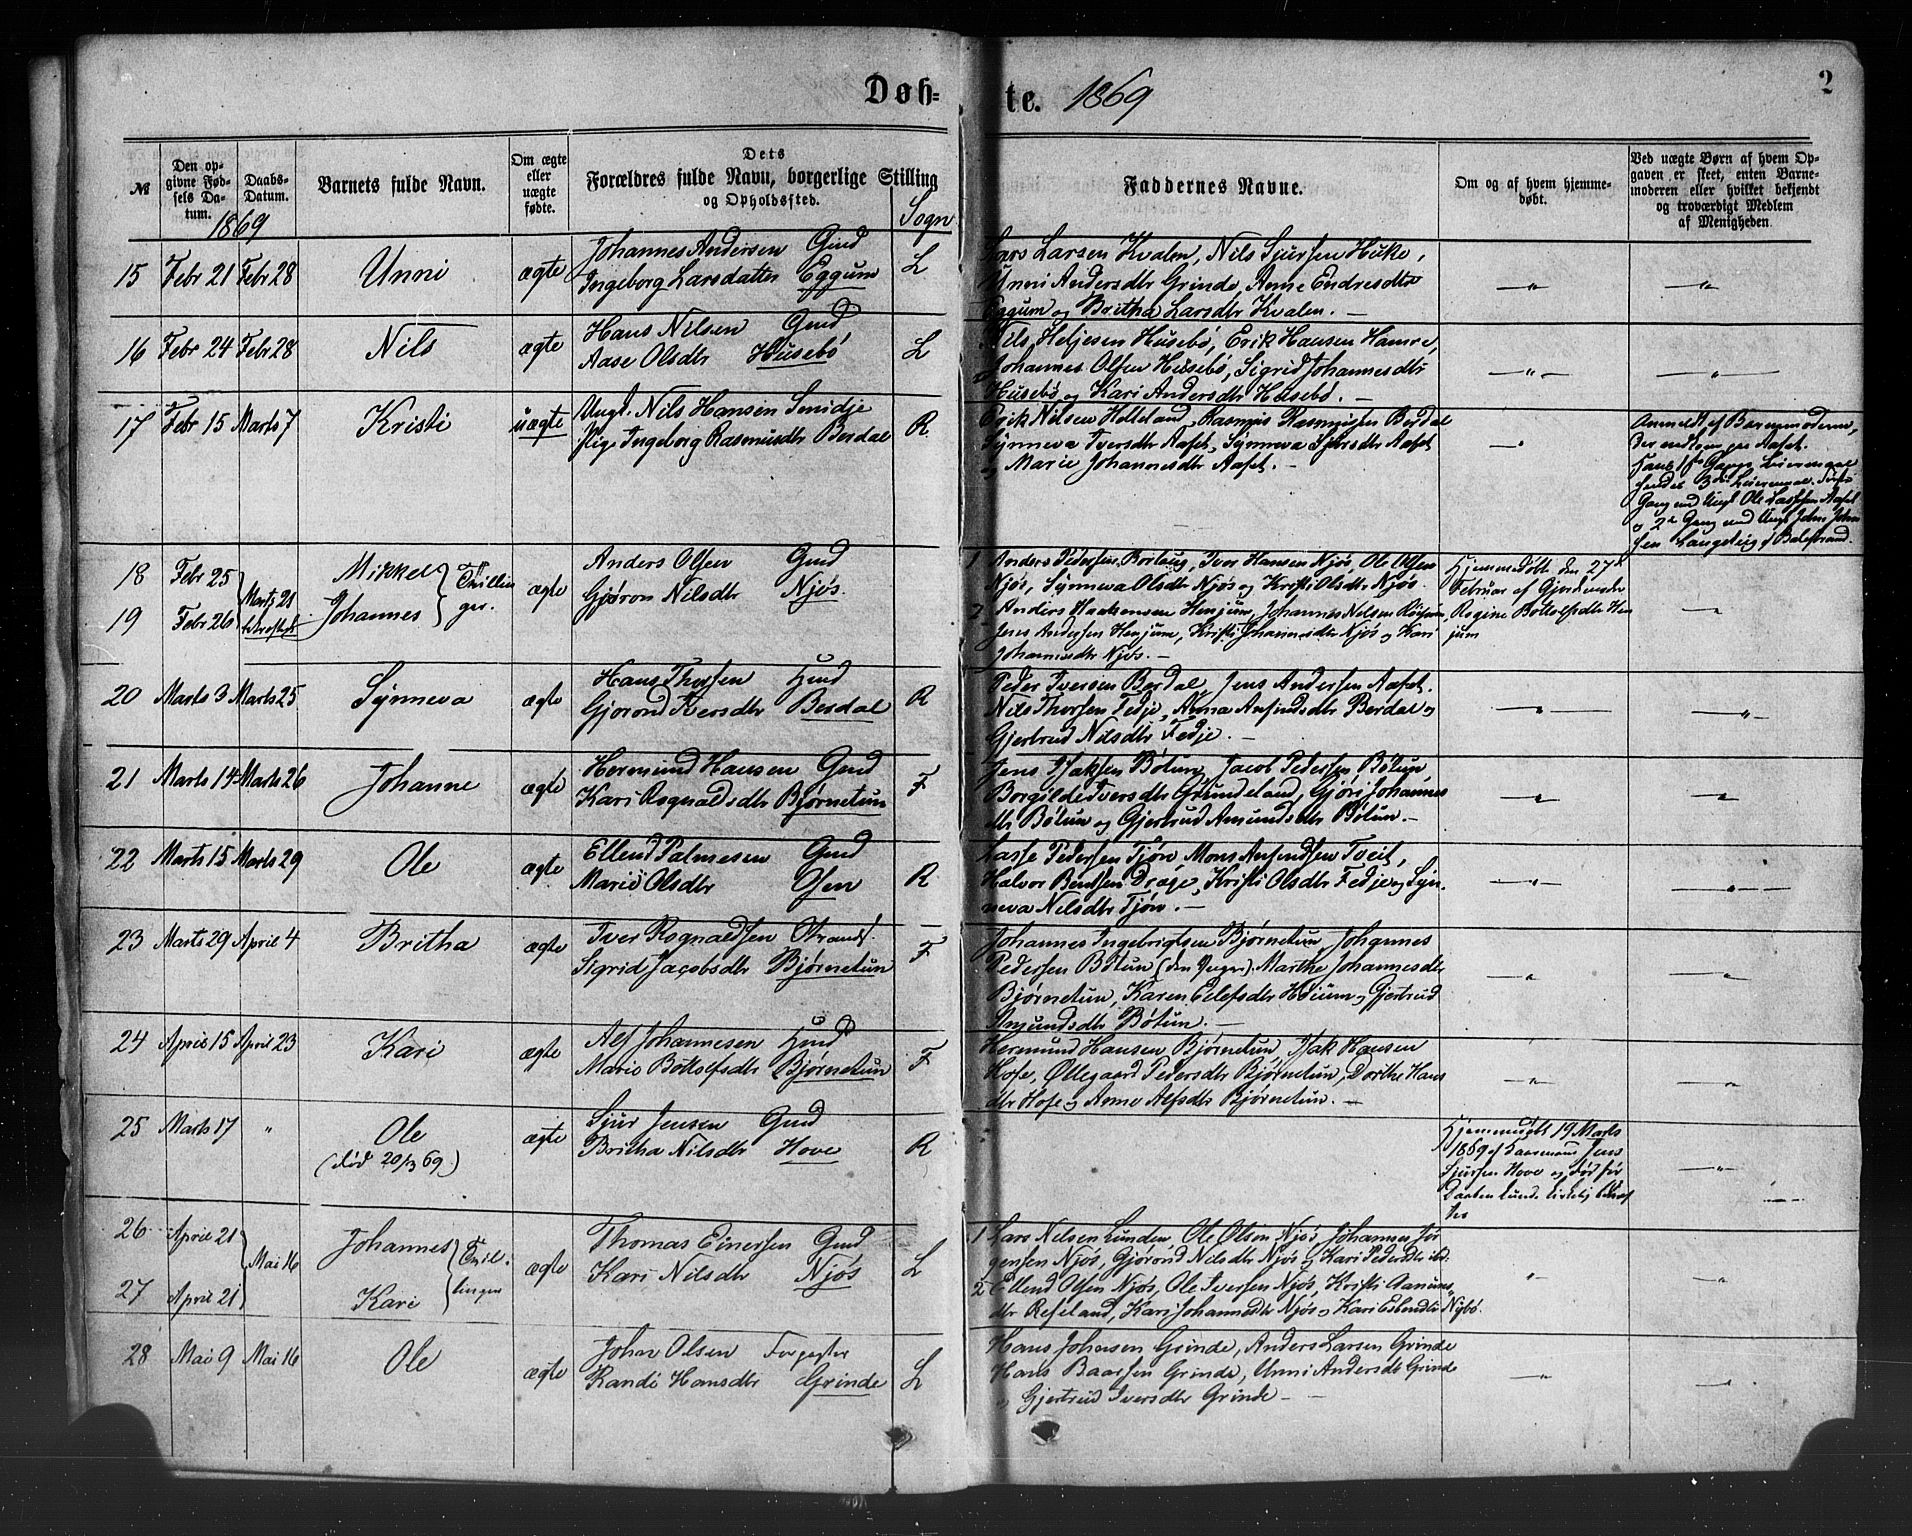 Døb-
te. 1869
2
№
Den op-
givne Fød-
sels Da-
tum.
Daabs-
Datum.
1869
Barnets fulde Navn.
Om ægte
eller
uægte
fødte.
Dets
Forældres fulde Navn, borgerlige Stilling
og Opholdssted.
Sogn
Faddernes Navne.
Om og af hvem hjemme-
døbt.
Ved uægte Børn af hvem Op-
gaven er skeet, enten Barne-
moderen eller hvilket bekjendt
og troværdigt Medlem
af Menigheden.
15 Febr 21 Febr 28 Unni ægte
Johannes Andersen Gmd
Ingeborg Larsdatter Eggum L
Lars Larsen Kvalen, Nils Sjursen Huke,
Unni Andersdtr Grinde, Anne Endresdtr
Eggum og Britha Larsdtr Kvalen. —
16 Febr 24 Febr 28 Nils ægte
Hans Nilsen Gmd
Aase Olsdtr Husebö L
Nils Heljesen Husebö, Erik Hansen Hamre,
Johannes Olsen Husebö, Sigrid Johannesdtr
Husebö og Kari Andersdtr Husebö. —
17 Febr 15 Marts 7 Kristi uægte
Ungk. Nils Hansen Smidje
Pige Ingeborg Rasmusdtr Berdal R
Erik Nilsen Holleland, Rasmus Rasmussen Berdal
Synneva Iversdtr Aafet, Synneva Sjursdtr Aafet
og Marie Johannesdtr Aafet. —
Anmeldt af Barnemoderen,
Hans 1ste Gangs Leiermaal
hendes 3die Leiermaal. Første
Gang med Ungk Ole Lassesen Aafet
og 2den Gang med Ungk John John
sen Langeteig i Balestrand.
18 Febr 25 Mikkel
19 Febr 26 Marts 21 Johannes Tvillin
ger. ægte
Anders Olsen Gmd
Gjøron Nilsdtr Njøs.
1 Anders Pedersen Borlaug, Iver Hansen Njøs, Ole Olsen
Njøs, Synneva Olsdtr Njøs og Kristi Olsdtr Njøs
2 Anders Haakensen Henjum, Johannes Nilsen
Jens Andersen Henjum, Kristi Johannesdtr Njøs og Kari
Johannesdtr Njøs. —
Hjemmedøbt den 27de
Februar af Gjordemoder
Regine Bottolfsdtr Hen
jum
20 Marts 3 Marts 25 Synneva ægte
Hans Thorsen Hmd
Gjorond Iversdtr Berdal R
Peder Iversen Berdal, Jens Andersen Aafet.
Nils Thorsen Fedje, Anna Anfindsdtr Berdal og
Gjertrud Nilsdtr Fedje. —
21 Marts 14 Marts 26 Johanne ægte
Hermund Hansen Gmd
Kari Rognaldsdtr Bjørnetun F
Jens Isaksen Bøtun, Jacob Pedersen Bøtun
Borgilde Iversdtr Grundeland, Gjøri Johannes
dtr Bøtun og Gjertrud Amundsdtr Bøtun. —
22 Marts 15 Marts 29 Ole ægte
Ellend Palmesen Gmd
Marie Olsdtr Osen R
Lasse Pedersen Tjøn, Mons Anfindsen Tveit,
Halvor Bentsen Drage, Kristi Olsdtr Fedje og Syn-
neva Nilsdtr Tjøn. —
23 Marts 29 April 4 Britha ægte
Iver Rognaldsen Strands.
Sigrid Jacobsdtr Bjørnetun F
Johannes Ingebrigtsen Bjørnetun, Johannes
Pedersen Bøtun (den Yngre), Marthe Johannesdtr
Bjørnetun, Karen Eilefsdtr Heium og Gjertrud
Amundsdtr Bøtun. —
24 April 15 April 23 Kari ægte
Alf Johannesen Hmd
Marie Bottolfsdtr Bjørnetun F
Hermund Hansen Bjørnetun, Isak Hansen
Hofe, Øllegaard Pedersdtr Bjørnetun, Dorthe Hans
dtr Hofe og Anne Alfsdtr Bjørnetun. —
25 Marts 17 " Ole
(død 20/3 69.) ægte
Sjur Jensen Gmd
Britha Nilsdtr Hove R
Hjemmedøbt 19 Marts
1869 af Jens
Sjursen Hove og død før
Daaben
26 April 21 Johannes
27 April 21 Mai 16 Kari Tvil-
linger ægte
Thomas Einersen Gmd
Kari Nilsdtr Njøs L
1 Lars Nilsen Lunden, Ole Olsen Njøs, Johannes Jør
gensen Njøs, Gjørond Nilsdtr Njøs og Kari Pedersdtr ibd.
2 Ellend Olsen Njøs, Ole Iversen Njøs, Kristi Aamuns
dtr Refeland, Kari Johannesdtr Njøs og Kari Esbendtr Nybø.
28 Mai 9 Mai 16 Ole ægte
John Olsen Forpagter
Randi Hansdtr Grinde L
Hans Johnsen Grinde, Anders Larsen Grinde
Hans Baarsen Grinde, Unni Andersdtr Grinde
og Gjertrud Iversdtr Grinde —